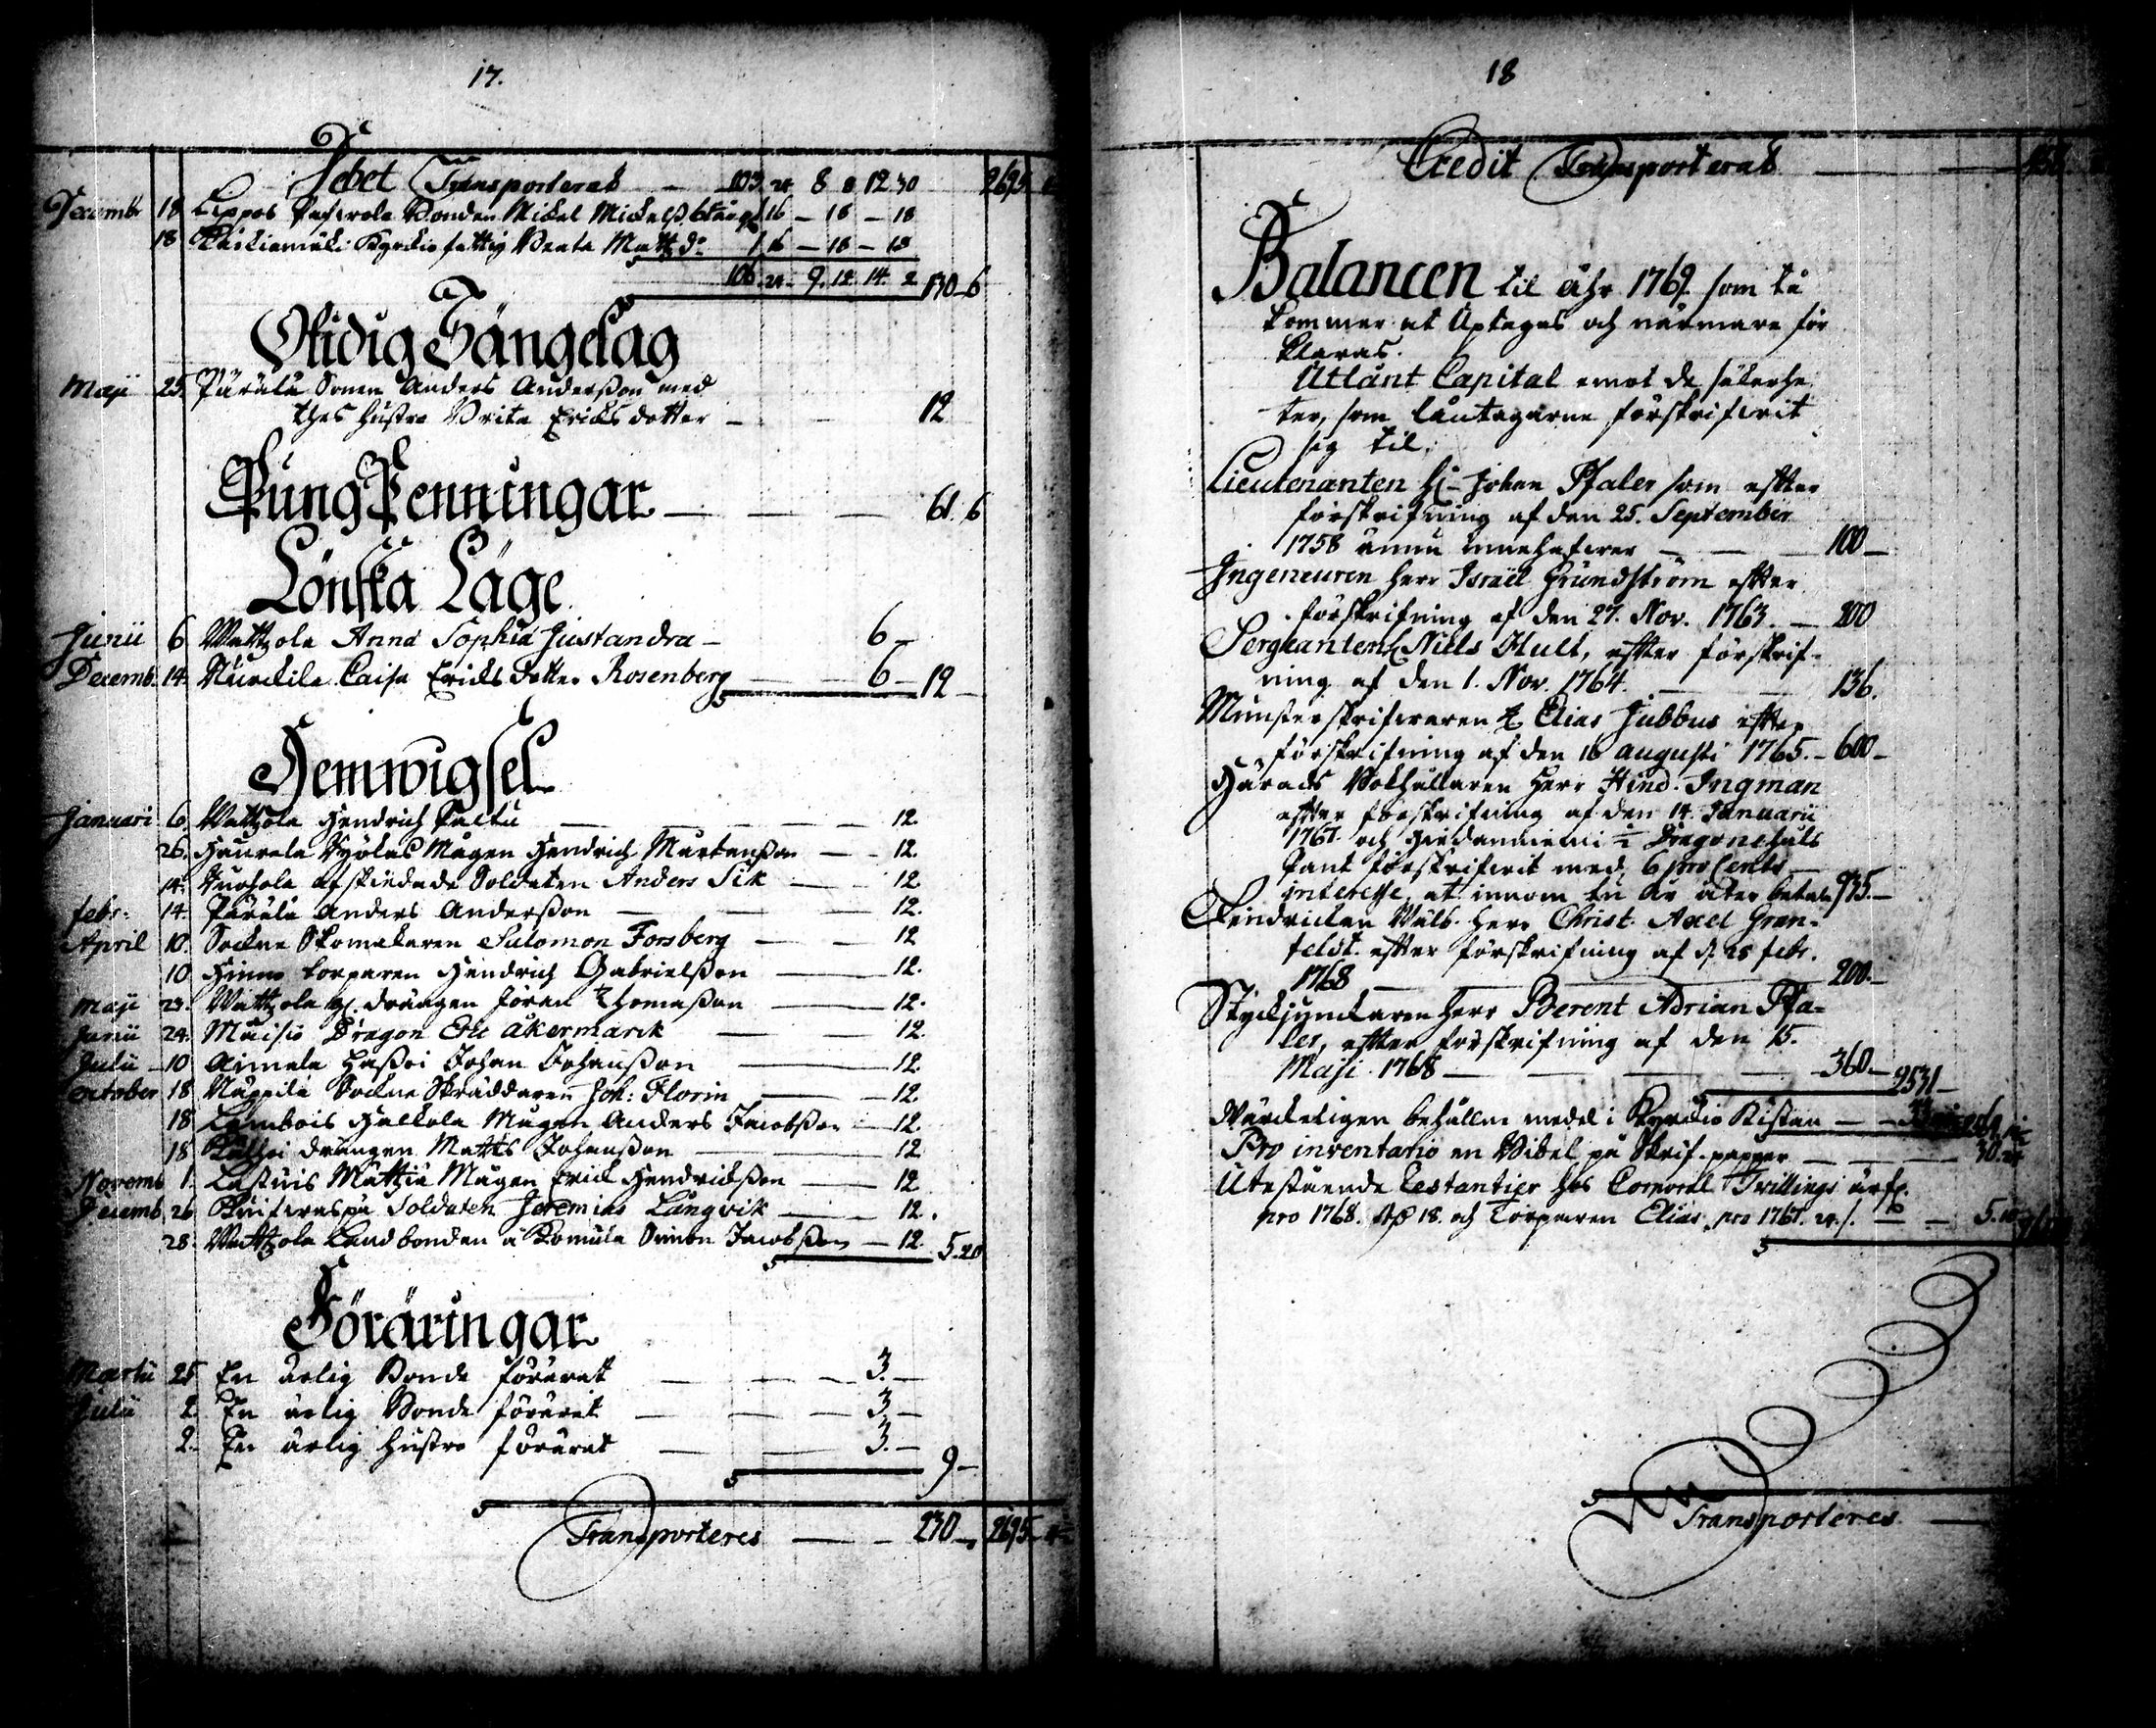 17.
Debet Transporterat — 103. 24 8 8 12 30 2695
Decembr 18 Lippos Paserola Bonden Mickel Mickelß. 1 16 — 18 — 18
18 Kyrckio fattig Beata Matt d:o 1 6 — 18 — 18
106. 24. 9. 12. 14. 2 130 6
Otidig Sängelag
Maji 25. Päräla Sonen Anders Anderßon med
thes hustro Brita Ericks dotter — 12
Pung Penningar — — — 61. 6
Lönska Läge
Junii 6 Wättzola Anna Sophia Justandra — 6 —
Decemb. 14. Nurckila Caisa Ericks dotter Rosenberg — 6 — 12 —
Hemwigsel
Januari 6. Wättzola Hendrich Paltu — 12
26. Haurola Mågen Hendrich Mårtensson — 12.
14. afskiedade Soldaten Anders Sik — 12
febr: 14. Päräla Anders Anderßon — 12.
April 10. Sockne Skomakaren Salomon Forsberg — 12
10 Hinno torparen Hendrich Gabrielßon — 12.
Maji 23. Wättzola drängen Jöran Thomaßon — 12.
Junii 24. Maisio Dragon Eric Åkermarck — 12.
Julii 10 Aimala Haßoi Johan Johanßon — 12.
October 18 Näppilä Sockne Skräddaren Joh: Florin — 12.
18 Lambois Hallola Mågen Anders Jacobßon — 12
18 drängen Matts Johanßon — 12
Novemb 1. Lastuis Mattzia Mågen Erick Hendrickßon — 12
Decemb. 26 Soldaten Jeremias Långvik — 12.
28. Wättzola Landbonden å Komula Simon Jacobßon — 12. 5. 20
Föräringar
Martii 25 En ärlig Bonde förärat — 3. —
Julii 2. En ärlig Bonde förärat — 3 —
2. En ärlig hustro förärat — 3. —
9 —
Transporteres — 230 — 2695
18
Credit Transporterat
Balancen til åhr 1769. som då
kommer at Uptagas och närmare för
klaras.
Utlånt Capital emot de säkerhe
ter, som låntagarne förskrifwit
sig til;
Lieutenanten H:r Johan Pfaler som efter
förskrifning af den 25. September
1758 ännu innehafwer — 100 —
Ingenieuren Herr Israël Grundström efter
förskrifning af den 27. Nov. 1763. — 200
Sergeanten H:r Niels Hult, efter förskrif-
ning af den 1. Nov. 1764. — 136.
Munsterskrifwaren H:r Elias Jubbus efter
förskrifning af den 16 augusti 1765. — 600 —
Härads Bokhållaren Herr Hind. Ingman
efter förskrifning af den 14 Januarii
1767. och Dragonehåls
Pant förskrifwit med 6 pro Cento
interesse, at innom tu år åter betala 935. —
Fendricken Wälb. Herr Christ. Axel Gran-
feldt. efter förskrifning af d. 28 febr.
1768 — 200. —
Styckjunckaren Herr Berent Adrian Pfa-
ler, efter förskrifning af den 15.
Maji 1768 — 360 — 2531 —
Wärckeligen behållne medel i Kyrckio Kistan —
Pro inventario en Bibel på Skrif-papper — 30.
Utestående Restantier hos Corporal Trillings
pro 1768. 18. och Torparen Elias pro 1767. 24. — 5.
Transporteres —